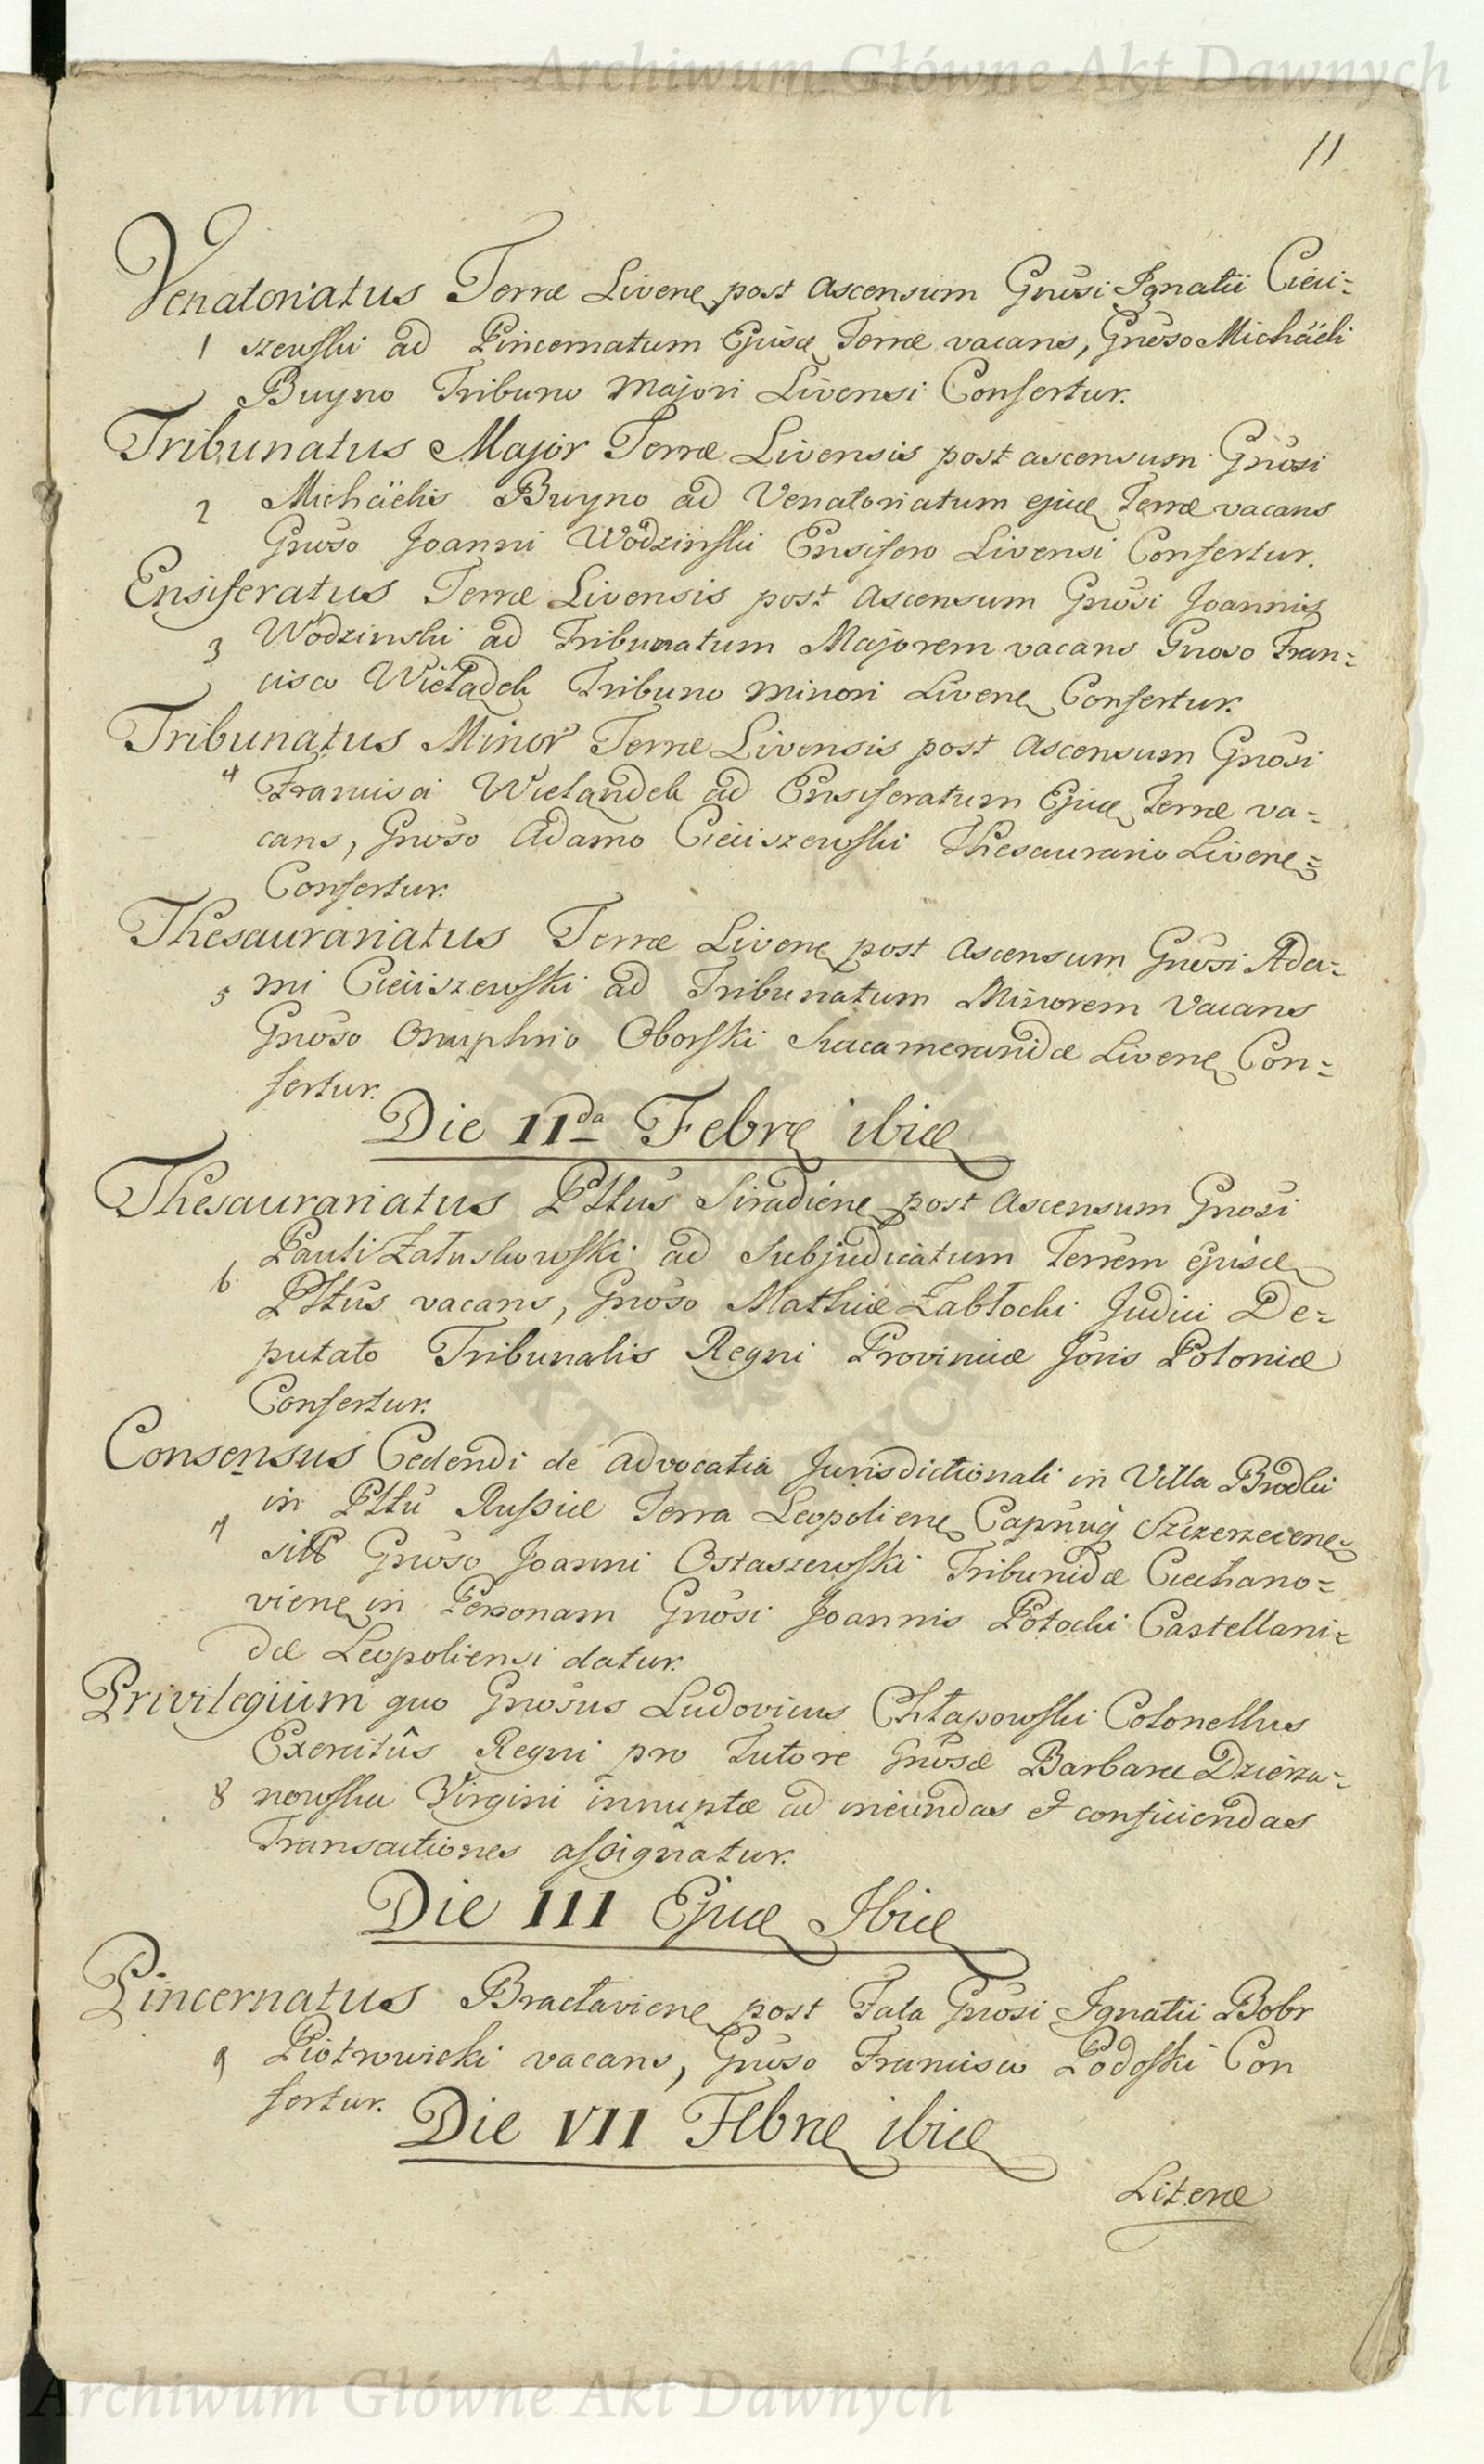 Archiwum Główne Akt Dawnych
11
Venatoriatus Terræ Livene post ascensum Gnosi Ignatii Cieci=
1 szewski ad Pincernatum Ejusd Terræ vacans, Gnoso Michäeli
Buyno Tribuno Majori Livensi Confertur.
Tribunatus Major Terræ Livensis post ascensum Gnosi
2 Michäelis Buyno ad Venatoriatum ejusd Terræ vacans
Gnoso Joanni Wodzinski Ensifero Livensi Confertur.
Ensiferatus Terræ Livensis post Ascensum Gnosi Joannis
3 Wodzinski ad Tribunatum Majorem vacans Gnoso Fran=
cisco Wielądek Tribuno Minori Livene Confertur.
Tribunatus Minor Terræ Livensis post Ascensum Gnosi
4 Francisci Wielandek ad Ensiferatum Ejusd Terræ va=
cans, Gnoso Adamo Cieciszewski Thesaurario Livene=
Confertur.
Thesaurariatus Terræ Livene post Ascensum Gnosi Ada=
5 mi Cieciszewski ad Tribunatum Minorem Vacans
Gnoso Onuphrio Oborski Succameraridæ Livene Con=
fertur.
Die 11da Febre ibid
Thesaurariatus Pttus Siradiene post Ascensum Gnosi
Pauli Załuskowski ad Subjudicatum Terrem ejusd
6 Pttus vacans, Gnoso Mathiæ Zabłocki Judici De=
putato Tribunalis Regni Provinciæ Joris Poloniæ
Confertur.
Consensus Cedendi de advocatia Jurisdictionali in Villa Brodki
in Pttu Russiæ Terra Leopoliene Capnuq Szczerzeciene
7 sitt Gnoso Joanni Ostaszewski Tribunidæ Ciechano=
viene in Personam Gnosi Joannis Potocki Castellani=
dæ Leopoliensi datur.
Privilegium quo Gnosus Ludovicus Chłapowski Colonellus
Exercitûs Regni pro Tutore Gnosæ Barbaræ Dzierża=
8 nowska Virgini innuptæ ad ineundas et conficiendas
Transactiones assignatur.
Die III Ejusd Ibid
Pincernatus Bracłaviene post Fata Gnosi Ignatii Bobr
9 Piotrowicki vacans, Gnoso Francisco Podoski Con
fertur.
Die VII Febre ibid
Literæ
Archiwum Główne Akt Dawnych